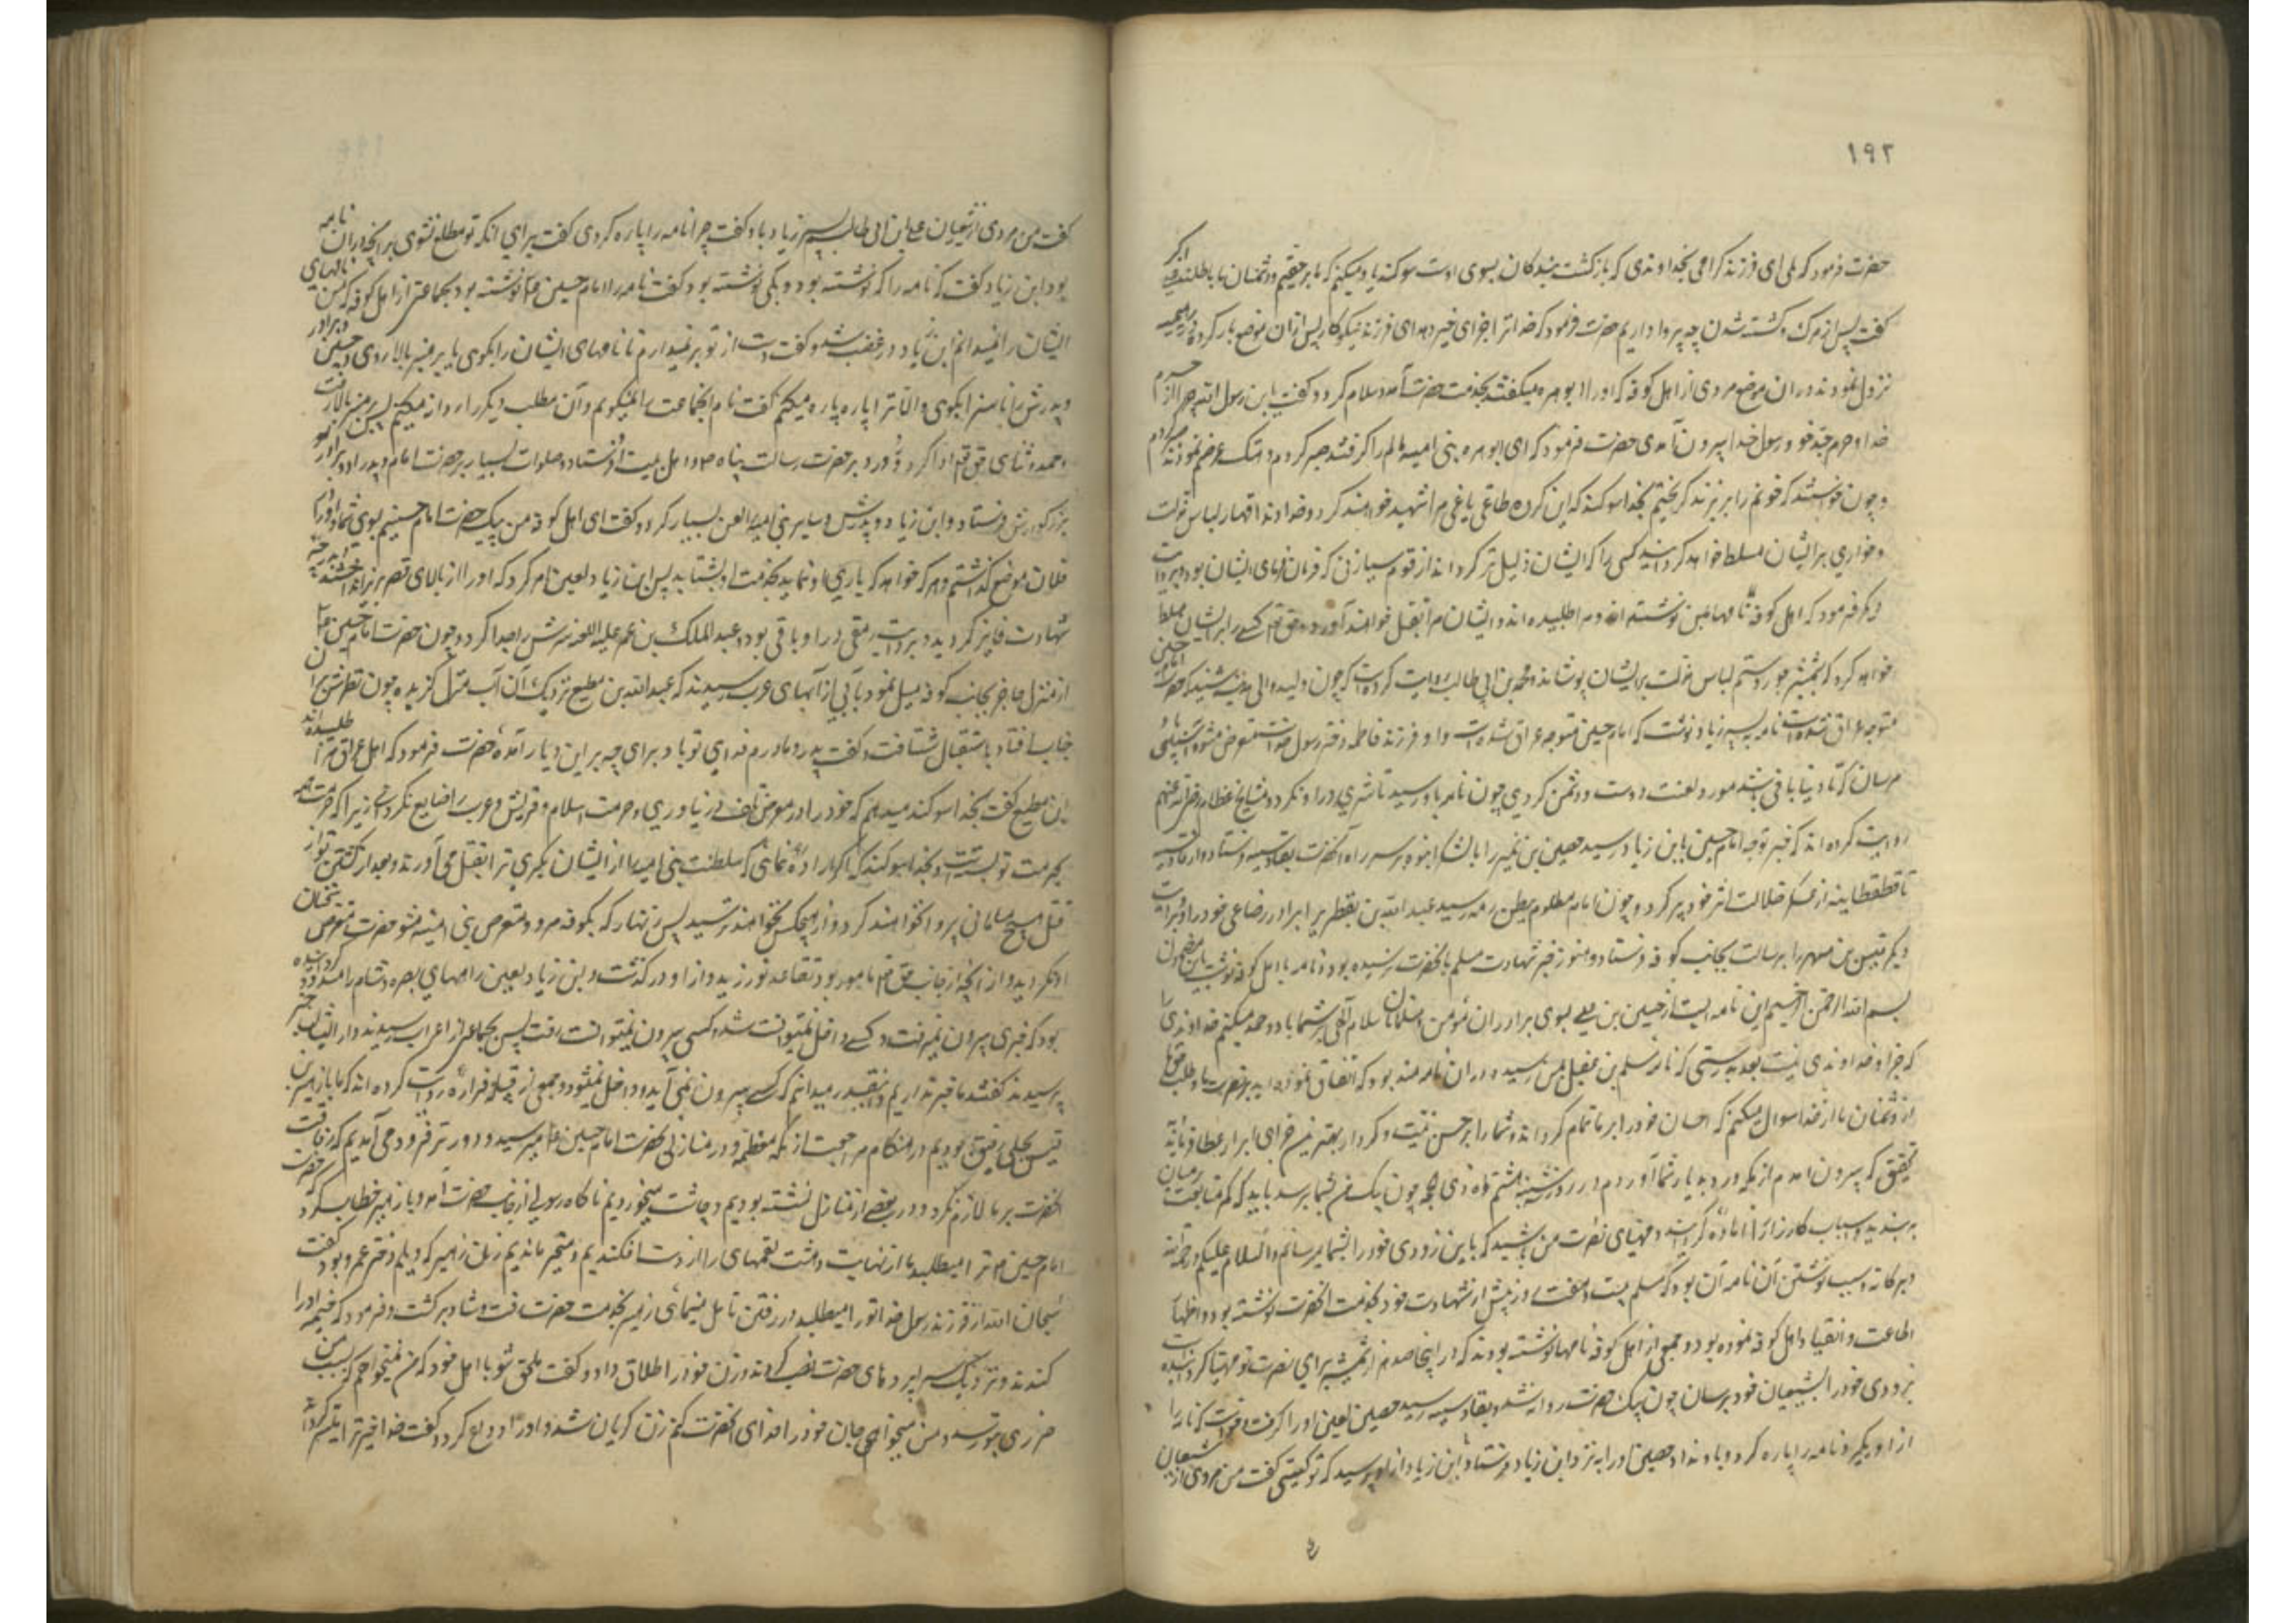 ۱۹۲
حضرت فرمود که بلی ای فرزند گرامی بخداوندی که بازگشت بندکان بسوی اوست سوکند یاد میکنم که ما بر حقیم و دشمنان ما باطلند اکبر
کفت پس از مرک و کشته شدن چه پروا داریم حضرت فرمود که خدا ترا جزای خیر دهد ای فرزند نیکوکار پس از ان موضع بار کرده
نزول نمودند در ان موضع مردی از اهل کوفه که او را ابو هره میکفتند بخدمت حضرت آمد و سلام کرد و کفت یا بن رسول الله چرا از حرم
خدا و حرم جد خود رسول خدا بیرون آمدی حضرت فرمود که ای ابو هره بنی امیه مالم را گرفتند صبر کردم و هتک عرضم نمودند صبر کردم
و چون خواستند که خونم را بریزند گریختم بخدا سوکند که این گروه طاغی یاغی مرا شهید خواهند کرد و خداوند قهار لباس مذلت
و خواری بر ایشان مسلط خواهد کردانید کسی را که ایشان ذلیل تر کرداند از قوم سبا زنی که فرمان فرمای ایشان بود و بروایت
دیکر فرمود که اهل کوفه نامها بمن نوشته اند و مرا طلبیده اند و ایشان مرا بقتل خواهند آورد و حق تعم کسی را بر ایشان مسلط
خواهد کرد که بشمشیر جور و ستم لباس مذلت بر ایشان پوشاند و محمد بن ابی طالب روایت کرده است که چون ولید والی مدینه شنید که حضرت امام حسین
متوجه عراق شده است نامه به پسر زیاد نوشت که امام حسین متوجه عراق شده است و او فرزند فاطمه دختر رسول خداست متعرض مشو و آسیبی باو
مرسان که تا دنیا باقی باشد مورد لعنت دوست و دشمن کردی چون نامه باو رسید تاثیری در او نکرد و مشایخ عظام رضی الله عنهم
روایت کرده اند که خبر توجه امام حسین باین زیاد رسید حصین بن نمیر را با لشکر انبوه بر سر راه انحضرت بقادسیه فرستاد و از قادسیه
تا قطقطانیه از لشکر ضلالت اثر خود پر کرد و چون امام مظلوم ببطن رمه رسید عبد الله بن یقطر برادر رضاعی خود را و بروایت
دیکر قیس بن مسهر را برسالت بجانب کوفه فرستاد و هنوز خبر شهادت مسلم بانحضرت نرسیده بود و نامه باهل کوفه نوشت باین مضمون
بسم الله الرحمن الرحیم این نامه ایست از حسین بن علی بسوی برادران مؤمن و مسلمانان سلام الهی بر شما باد و حمد میکنم خداوندی را
که جز او خداوندی نیست بعد بدرستی که نامه مسلم بن عقیل بمن رسید در ان نامه مندرج بود که اتفاق نموده اید بر نصرت ما و طلب حق ما
از دشمنان ما از خدا سوال میکنم که احسان خود را بر ما تمام کرداند و شما را بر حسن نیت و کردار بهترین جزای ابرار عطا فرماید
بتحقیق که بیرون امدم از مکه و رو بدیار شما آوردم در روز سه شنبه هشتم ماه ذی حجه چون پیک من بشما برسد باید که کمر متابعت برمیان
به بندید و اسباب کارزار را آماده کردانید و مهیای نصرت من باشید که باین زودی خود را بشما برسانم والسلام علیکم و رحمة الله
وبرکاته و سبب نوشتن آن نامه آن بود که مسلم بیست و هفت روز پیش از شهادت خود بخدمت انحضرت نوشته بود و اظهار
اطاعت و انقیاد اهل کوفه نموده بود و جمعی از اهل کوفه نامها نوشته بودند که در اینجا صد هزار شمشیر برای نصرت تو مهیا کردانیده
بزودی خود را بشیعیان خود برسان چون پیک حضرت روانه شد و بقادسیه رسید حصین لعین او را گرفت و خواست که نامه را
از او بکیرد نامه را پاره کرد و باو نداد حصین او را به نزد ابن زیاد فرستاد ابن زیاد از او پرسید که تو کیستی کفت من مردی از شیعیان
کفت من مردی از شیعیان علی بن ابی طالب پسر زیاد باو کفت چرا نامه را پاره کردی کفت برای انکه تو مطلع نشوی بر انچه در ان نامه
بود ابن زیاد کفت که نامه را که نوشته بود و بکی نوشته بود کفت نامه را امام حسین عم نوشته بود بجماعتی از اهل کوفه که من نامهای
ایشان را نمیدانم ابن زیاد در غضب شد و کفت دست از تو بر نمیدارم تا نامهای ایشان را بکوی یا بر منبر بالا روی و حسین و برادر
و پدرش را ناسزا بکوی و الا ترا پاره پاره میکنم کفت نام انجماعت را نمیکویم و آن مطلب دیکر را روا نمیکنم پس بر منبر بالا رفت
و حمد و ثنای حق تعم ادا کرد و درود بر حضرت رسالت پناه و اهل بیت او فرستاد و صلوات بسیار بر حضرت امام و پدر او و برادر
بزرگوارش فرستاد و ابن زیاد و پدرش و سایر بنی امیه را لعن بسیار کرد و کفت ای اهل کوفه من پیک حضرت امام حسینم بسوی شما او را در
فلان موضع کذاشتم و هر که خواهد که یاری او نماید بخدمت او بشتابد پس ابن زیاد لعین امر کرد که او را از بالای قصر بزیر انداختند بدرجه
شهادت فایز کردید و بروایتی رمقی در او باقی بود و عبد الملک بن عمیر علیه اللعنه سرش را جدا کرد و چون حضرت امام حسین عم
از منزل حاجز بجانب کوفه میل نمود بآبی از آبهای عرب رسیدند که عبد الله بن مطیع نزدیک آن آب منزل گزیده چون نظرش بر ان
جناب افتاد باستقبال شتافت و کفت پدر و مادرم فدای تو باد برای چه بر این دیار آمده حضرت فرمود که اهل عراق مرا طلبیده اند
ابن مطیع کفت بخدا سوکند میدهم که خود را در معرض تلف در نیاوری و حرمت اسلام و قریش و عرب را ضایع نکردانی زیرا که حرمت همه
بحرمت تو بسته است و بخدا سوکند که اگر اراده نمائی که سلطنت بنی امیه را از ایشان بگیری ترا بقتل می آورند و بعد از کشتن تو از
قتل هیچ مسلمانی پروا نخواهند کرد و از هیچکس نخواهند ترسید پس زنهار که بکوفه مرو و متعرض بنی امیه مشو حضرت متعرض سخنان
او نکردید و از آنچه از جانب حق تعم مامور بود تقاعد نورزید و از او در کذشت و ابن زیاد لعین راههای بصره و شام را مسدود کردانیده
بود که خبری بیرون نمیرفت و کسی داخل نمیتوانست شد و کسی بیرون نمیتوانست رفت پس بجماعتی از اعراب رسیدند و از ایشان خبر
پرسیدند کفتند ما خبر نداریم و اینقدر میدانیم که کسی بیرون نمی آید و داخل نمیشود و جمعی از قبیله فزاره روایت کرده اند که ما با زهیر بن
قیس بجلی رفیق بودیم در هنکام مراجعت از مکه معظمه و در منازل بحضرت امام حسین عم میرسید و دورتر فرود می آمدیم که رفاقت
انحضرت بر ما لازم نکردد و در بعضی از منازل نشسته بودیم و چاشت میخوردیم ناکاه رسولی از جانب حضرت آمد و با زهیر خطاب کرد که حضرت
امام حسین عم ترا میطلبد ما از نهایت دهشت لقمهای را از دست افکندیم و متحیر ماندیم زن زهیر که دیلم دختر عمرو بود کفت
سبحان الله فرزند رسول خدا تو را میطلبد در رفتن تامل مینمائی زهیر بخدمت حضرت رفت و شاد برکشت و فرمود که خیمه او را
کندند و نزدیک سراپردهای حضرت نصب کردند و زن خود را طلاق داد و کفت ملحق شو باهل خود که من نمیخواهم که بسبب من
ضرری بتو رسد و من میخواهم جان خود را فدای انحضرت کنم زن گریان شد و او را وداع کرد و کفت خدا خیر ترا میسر کرداند